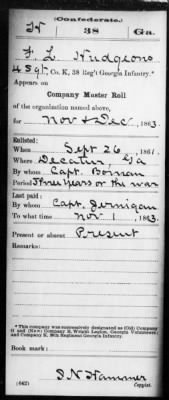 (Confederate.)
H 38 Ga.
F. L. Hudgeons
4 Sgt, Co. K, 38 Reg't Georgia Infantry.*
Appears on
Company Muster Roll
of the organization named above,
for Nov & Dec, 1863.
Enlisted:
When Sept 26, 1861.
Where Decatur, Ga
By whom Capt. Boman
Period Three years or the war
Last paid:
By whom Capt. Jernigan
To what time Nov 1, 1863.
Present or absent Present
Remarks:
*This company was successively designated as (Old) Company
and Company K, 38th Regiment Georgia Infantry.
Book mark:
(642) S. N. Hammer
Copyist.